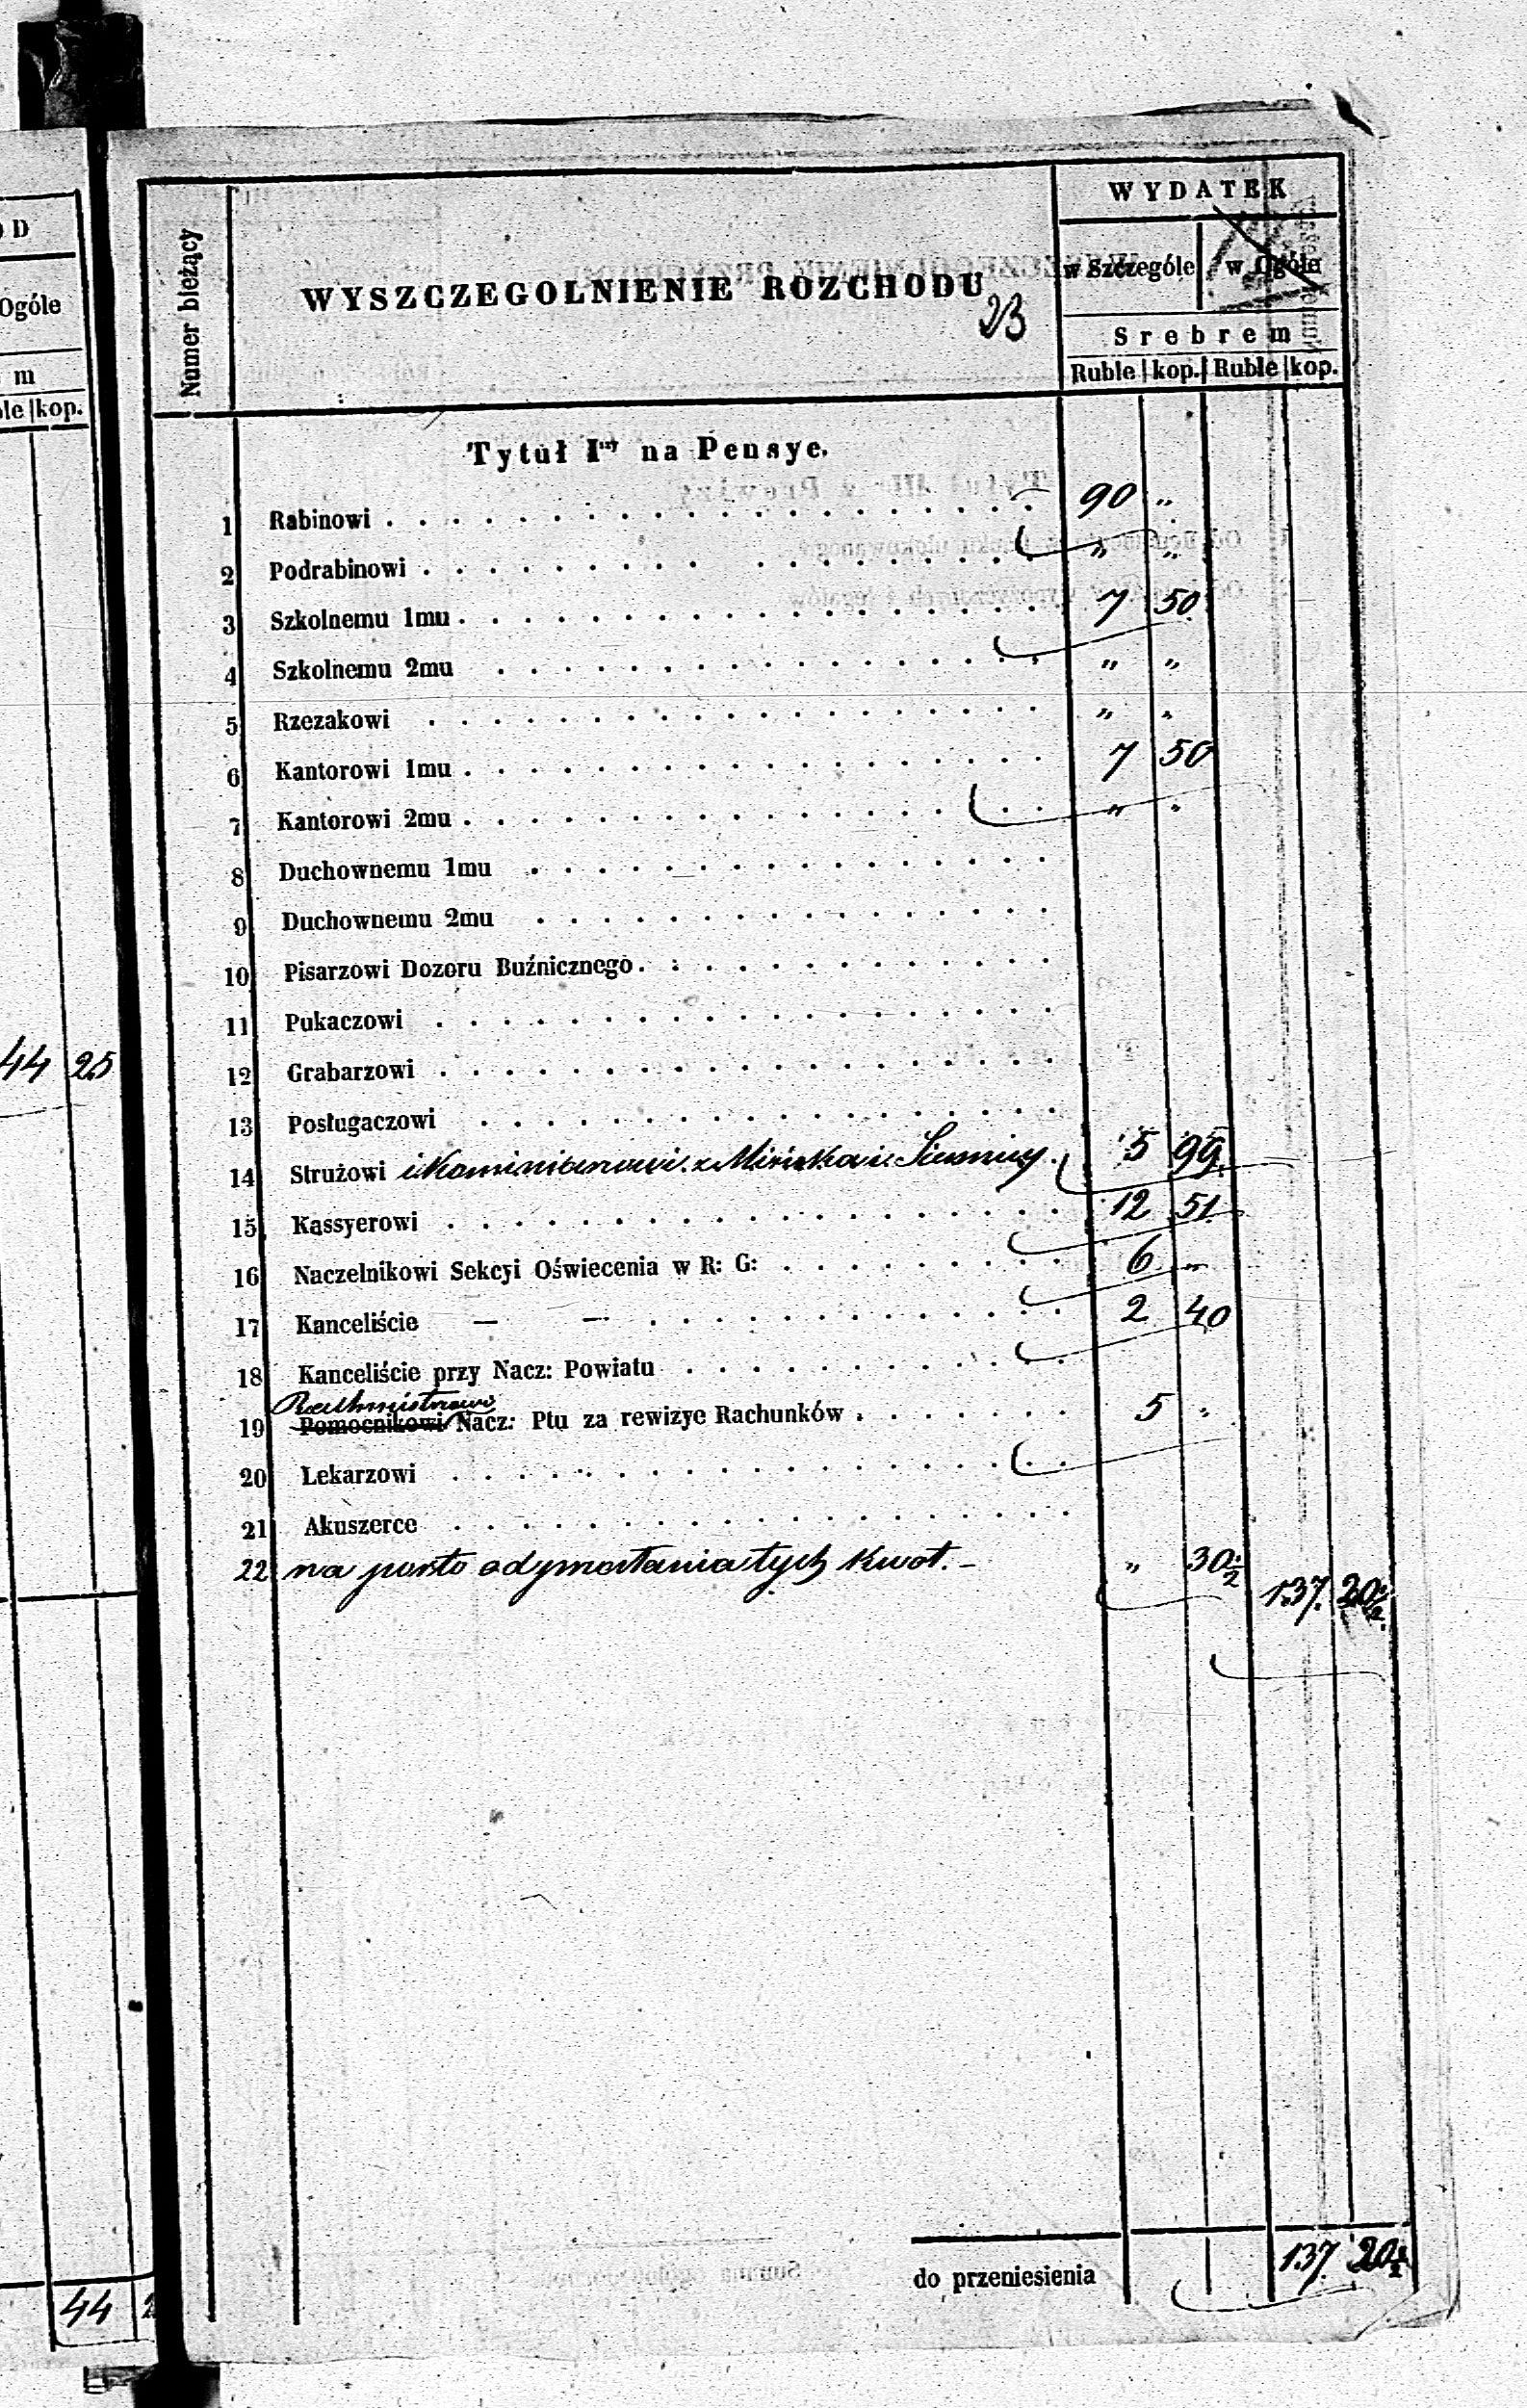 OD
Ogóle
m
ble kop.
44 25
44 2
Numer bieżący
WYSZCZEGOLNIENIE ROZCHODU
23
WYDATEK
w Szczególe w Ogóle
Srebrem
Ruble kop. Ruble kop.
Tytuł Iszy na Pensye.
1 Rabinowi 90 „
2 Podrabinowi „ „
3 Szkolnemu 1mu 7 50
4 Szkolnemu 2mu „ „
5 Rzezakowi „ „
6 Kantorowi 1mu 7 50
7 Kantorowi 2mu „ „
8 Duchownemu 1mu
9 Duchownemu 2mu
10 Pisarzowi Dozoru Buźnicznego
11 Pukaczowi
12 Grabarzowi
13 Posługaczowi
14 Strużowi i Kominiarzowi z Mińska i Siennicy 5 99
15 Kassyerowi 12 51
16 Naczelnikowi Sekcyi Oświecenia w R: G: 6 „
17 Kanceliście — — 2 40
18 Kanceliście przy Nacz: Powiatu
Rachmistrzowi
19 Pomocnikowi Nacz: Ptu za rewizye Rachunków 5 „
20 Lekarzowi
21 Akuszerce
22 na porto od ymertania tych kwot.- „ 30 1/2
137. 20 1/2
do przeniesienia 137. 20 1/2